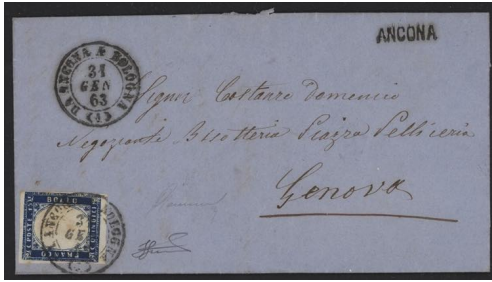 ANCONA
DA ANCONA A BOLOGNA
31
GEN
63
(1)
Signor Costanzo Domenico
Negoziante Bisotteria Piazza Pelliceria
Genova
FRANCO
C. POSTE
BOLLO